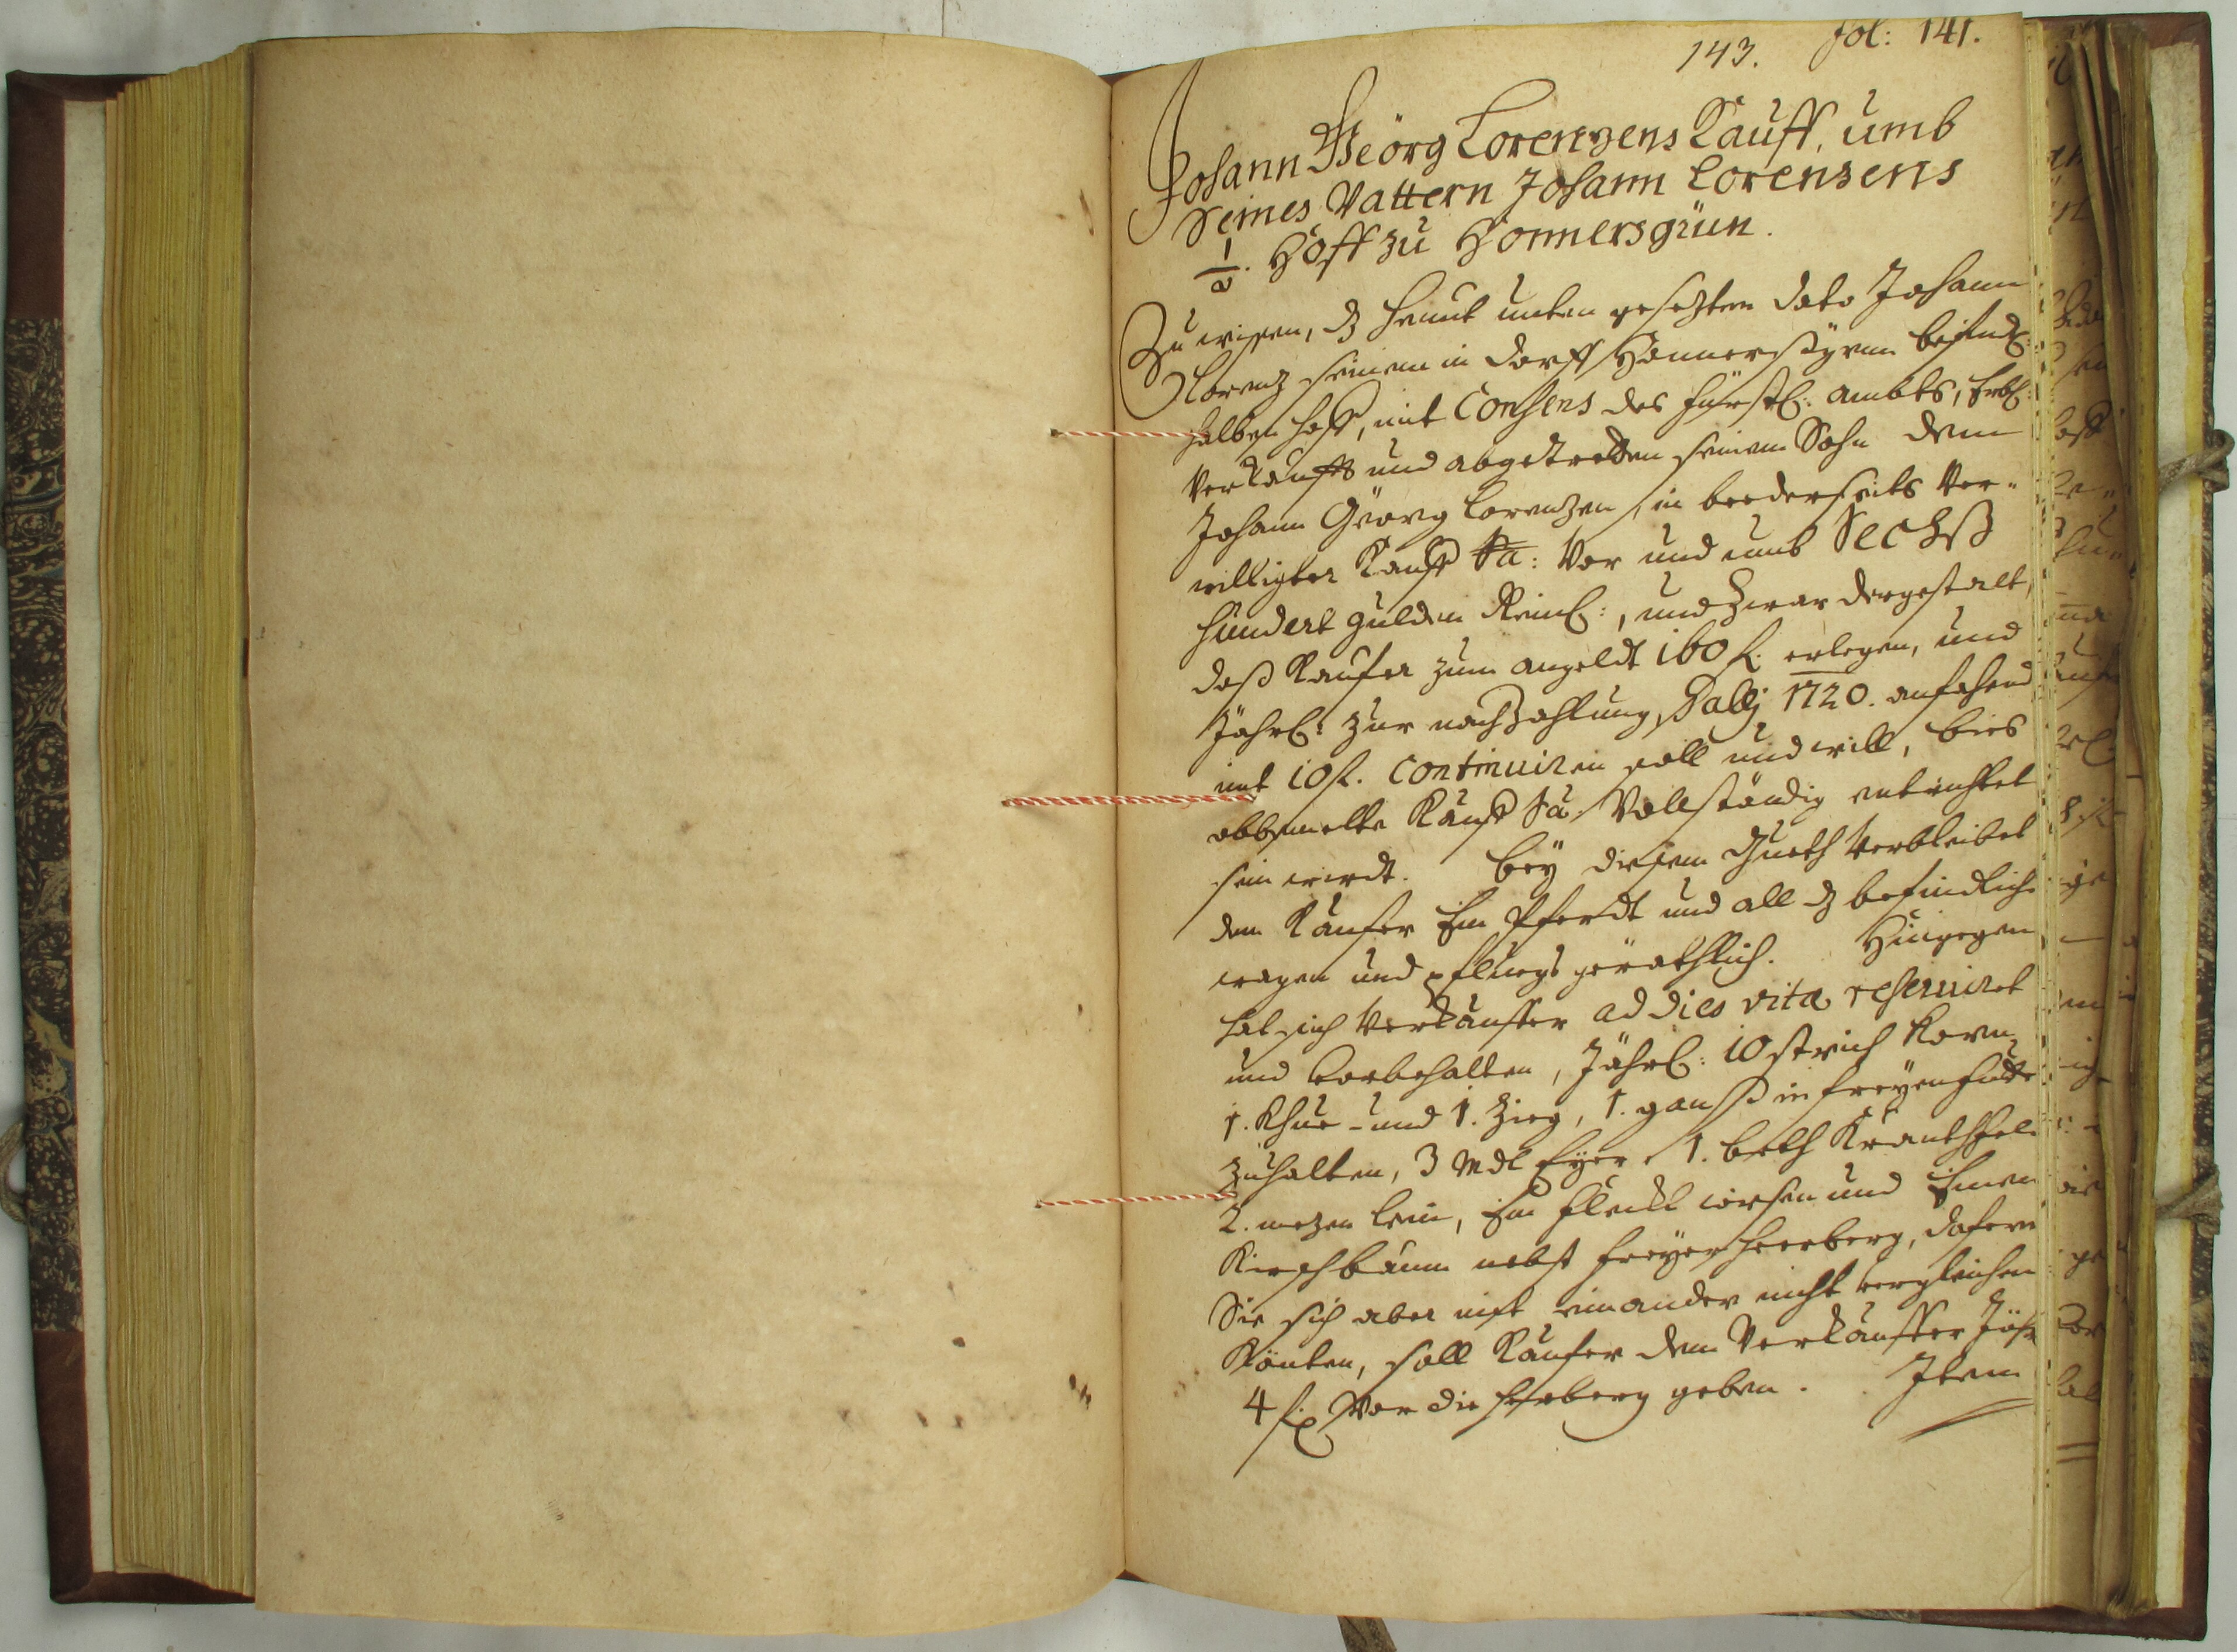 143. fol: 141.
Johann Geörg Lorenzens Kauff, umb
Seines Vattern Johann Lorenzens
1/2. Hoff zu Honnersgrün.
Zu wißen, dz heünt unten gesezten dato Johann
Lorenz seinen in dorff Honnerßgrün befindl:
halben Hoff, mit Consens des fürstl: ambts, Erbl:
Verkaufft und abgetretten seinem Sohn dem
Johann Georg Lorenzen, in beederseits Ver-
willigter Kauff Sa: Vor und umb Sechß
hundert gulden Reinl:, und Zwar dergestalt,
daß Kaufer zum angeldt 160 f. erlegen, und
Jährl: zur nachzahlung, Galli 1720. anfahend
mit 10 f. Continuiren soll und will, bies
obbemelte Kauff Sa. Vollständig entrichtet
sein wirdt. bey diesem Gueth Verbleibet
dem Käufer Ein Pferdt und all dz befindliche
wagen und pfluegs geräthlich. Hingegen
hat sich Verkäuffer ad dies vitæ reserviret
und Vorbehalten, Jährl: 10 strich Korn,
1. Khue - und 1. Zieg, 1. ganß in freyen futter
zuhalten, 3 Mdl Eyer, 1. beth Krauthfeld
2. mezen lein, Ein fleckl wiesen und Einen
Kirschbaum nebst freyer herberg, dafern
Sie sich aber mit einander nicht vergleichen
Könten, soll Käufer dem Verkäuffer Jährl
4 f. Vor die herberg geben. Item